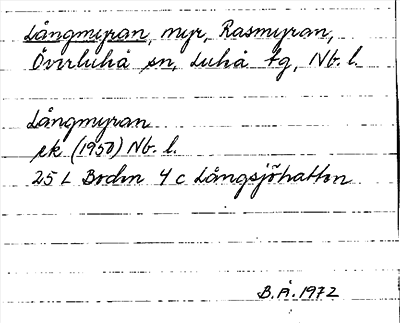 Långmyran, myr, Rasmyran,
Överluleå sn, Luleå tg, Nb. l.
Långmyran
ek (1950) Nb. l.
25 L Boden 4 c Långsjöhatten
B.Å. 1972